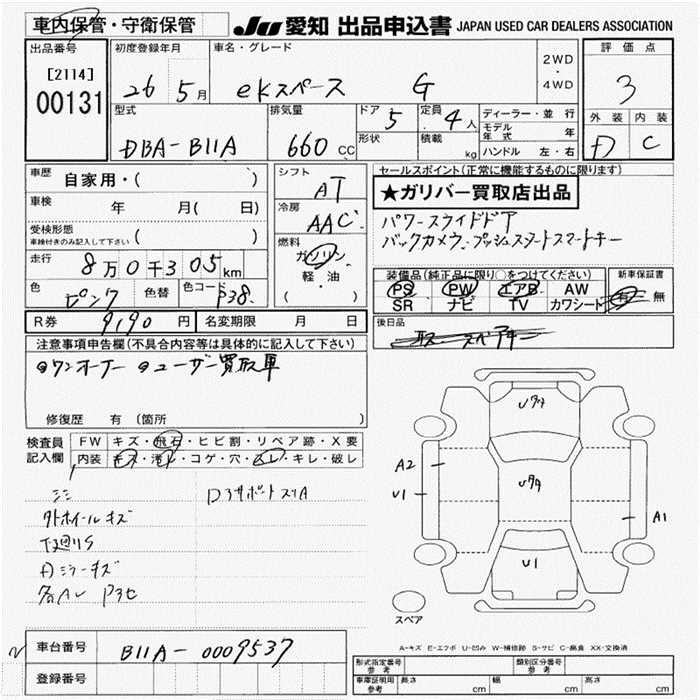 車内保管・守衛保管 JU 愛知 出品申込書 JAPAN USED CAR DEALERS ASSOCIATION
出品番号 初度登録年月 車名・グレード 2WD ・ 4WD 評価点
[2114] 00131 26 5月 eKスペース G 3
型式 排気量 ドア 定員 ディーラー・並行 外装 内装
DBA-B11A 660 CC 5 4人 モデル年式 年 D C
形状 積載 kg ハンドル 左・右
車歴 自家用・( ) シフト AT セールスポイント(正常に機能するものに限ります)
車検 年 月( 日) 冷房 AAC ★ガリバー買取店出品
受検形態 車検付きのみ記入して下さい ( ) 燃料 ガソリン 軽・油 ( ) パワースライドドア
バックカメラ・プッシュスタートスマートキー
走行 8万0千305km 装備品(純正品に限り○をつけてください) 新車保証書
色 ピンク 色替 色コード P38 PS PW エアB AW 有・無
SR ナビ TV カワシート
R券 9190円 名変期限 月 日 後日品
スペアキー
注意事項申告欄(不具合内容等は具体的に記入して下さい)
◎ワンオーナー ◎ユーザー買取車
修復歴 有 (箇所 )
検査員記入欄 FW キズ・飛石・ヒビ割・リペア跡・X要
内装 キズ・汚レ・コゲ・穴・スレ・キレ・破レ
外ホイールキズ
下廻りS
A2
U1
A1
U1
スペア
A-キズ E-エクボ U-凹み W-補修跡 S-サビ C-腐食 XX-交換済
車台番号 B11A-0009537
登録番号
形式指定番号 参考 類別区分番号 参考
車庫証明用 参考 長さ cm 幅 cm 高さ cm